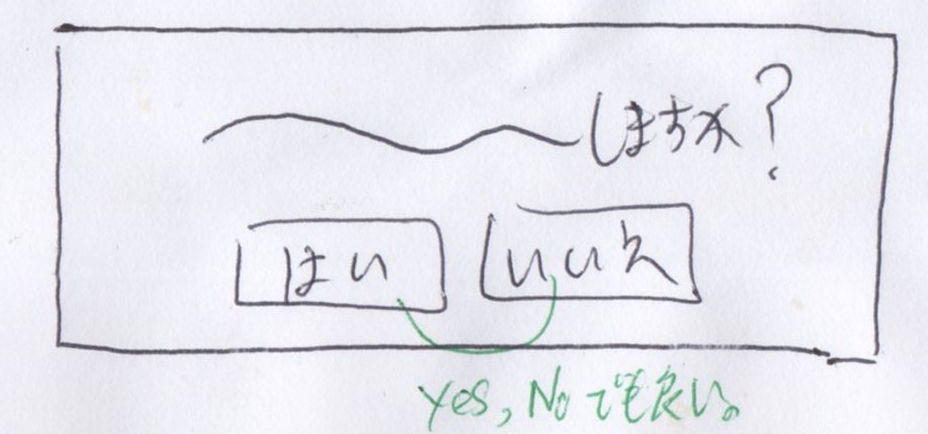 しますか?
はい
いいえ
Yes, Noでも良い。